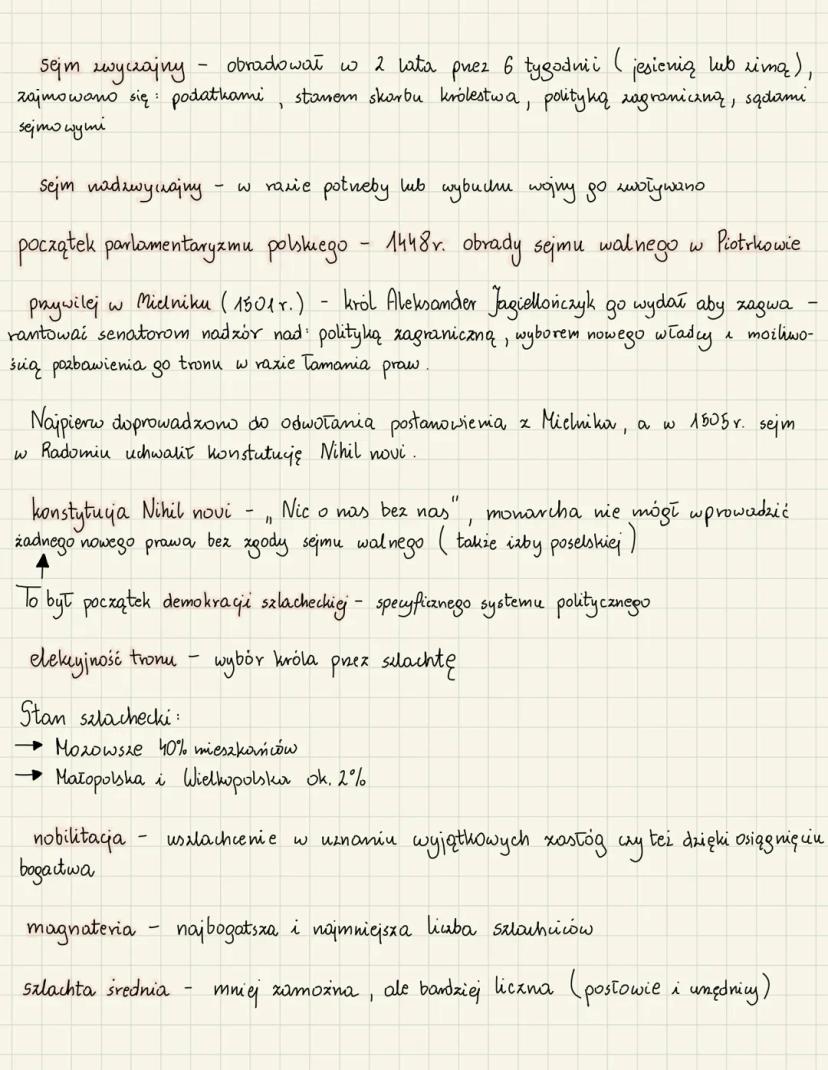 sejm zwyczajny – obradował w 2 lata przez 6 tygodnii ( jesienią lub zimą ),
zajmowano się: podatkami , stanem skarbu królestwa, polityką zagraniczną, sądami
sejmowymi
sejm nadzwyczajny – w razie potrzeby lub wybuchu wojny go zwoływano
początek parlamentaryzmu polskiego – 1448r. obrady sejmu walnego w Piotrkowie
przywilej w Mielniku ( 1501 r. ) – król Aleksander Jagiellończyk go wydał aby zagwa –
rantować senatorom nadzór nad: polityką zagraniczną, wyborem nowego władcy i możliwo-
ścią pozbawienia go tronu w razie łamania praw.
Najpierw doprowadzono do odwołania postanowienia z Mielnika, a w 1505r. sejm
w Radomiu uchwalił konstutucję Nihil novi.
konstytucja Nihil novi – „ Nic o nas bez nas", monarcha nie mógł wprowadzić
żadnego nowego prawa bez zgody sejmu walnego ( także izby poselskiej )
To był początek demokracji szlacheckiej – specyficznego systemu politycznego
elekcyjność tronu – wybór króla przez szlachtę
Stan szlachecki:
→ Mazowsze 40% mieszkańców
→ Małopolska i Wielkopolska ok. 2%
nobilitacja – uszlachcenie w uznaniu wyjątkowych zasłóg czy też dzięki osiągnięciu
bogactwa
magnateria – najbogatsza i najmniejsza liczba szlachciców
szlachta średnia – mniej zamożna , ale bardziej liczna ( posłowie i urzędnicy )